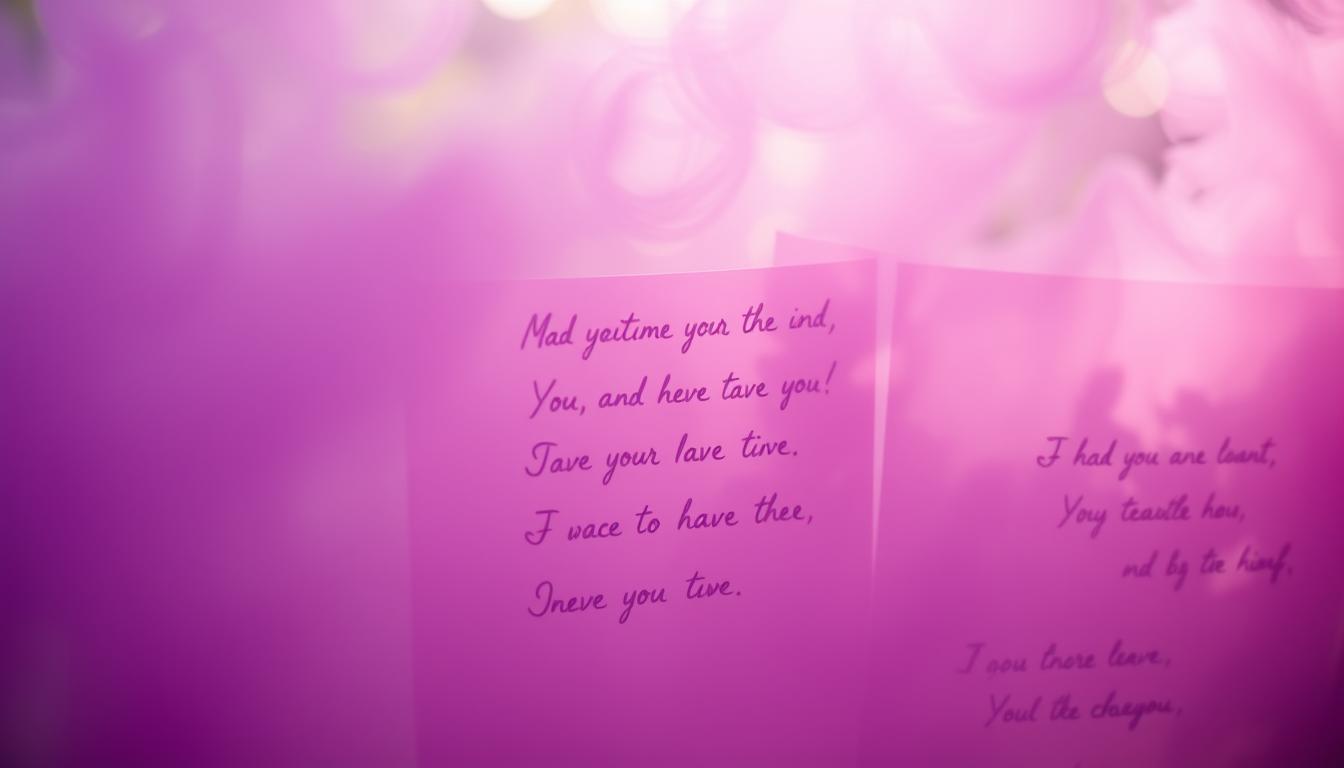 Mad yeitime your the ind,
You, and heve tave you!
Jave your lave tive.
I wace to have thee,
Ineve you tive.
I had you are loant,
Youy teautle hou,
nd bg tie
I gou tnore leave,
Youl the